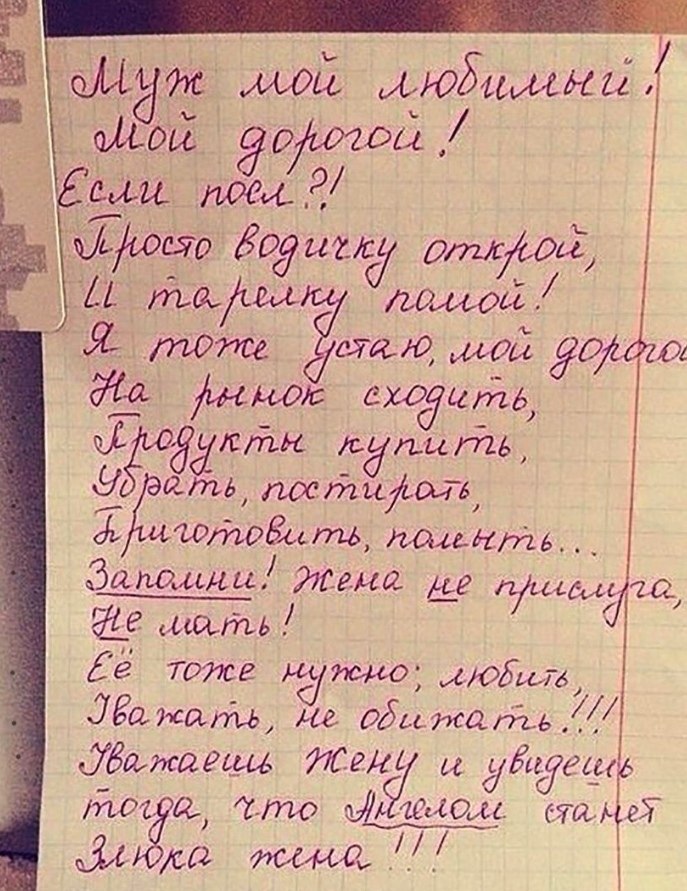 Муж мой любимый!
Мой дорогой!
Если поел?!
Просто водичку открой,
И тарелку помой!
Я тоже устаю, мой дорогой
На рынок сходить,
Продукты купить,
Убрать, постирать,
Приготовить, помыть...
Запомни! Жена не прислуга,
Не мать!
Её тоже нужно; любить,
Уважать, не обижать!!!
Уважаешь жену и увидешь
тогда, что Ангелом станет
Злюка жена!!!